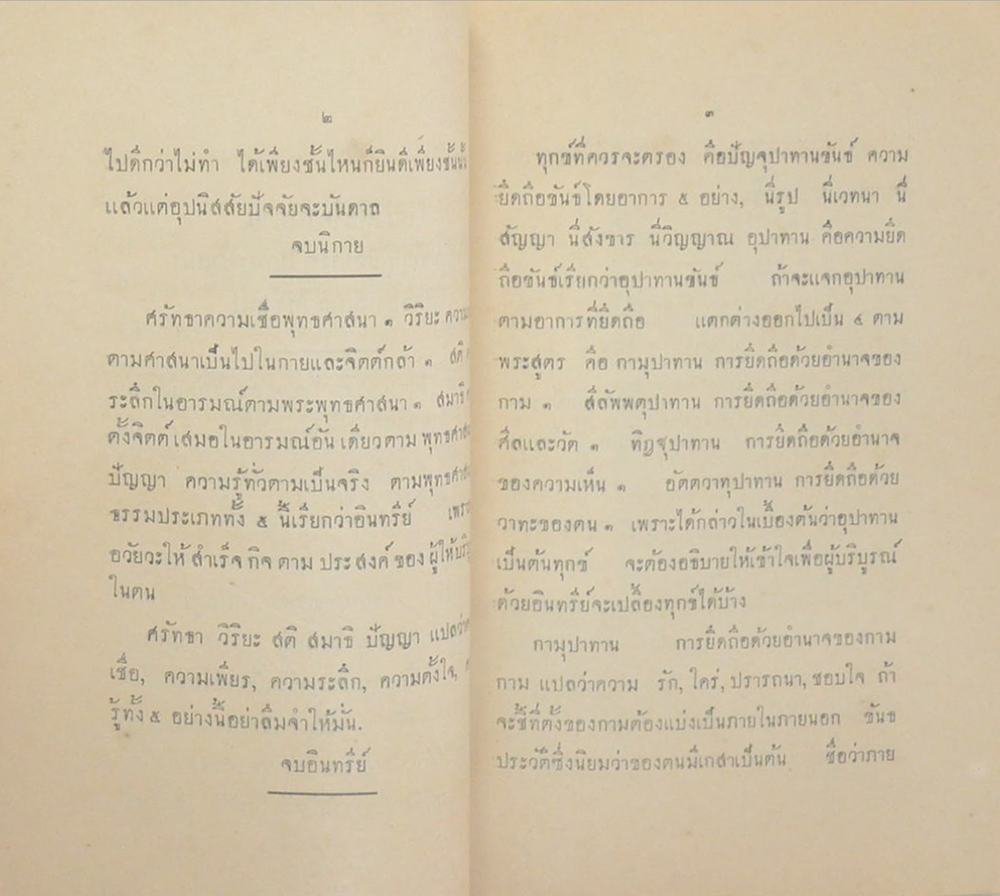 ๒
ไปดีกว่าไม่ทำ ได้เพียงชั้นไหนก็ยินดีเพียงชั้น
แล้วแต่อุปนิสสัยปัจจัยจะบันดาล
จบนิกาย
ศรัทธาความเชื่อพุทธศาสนา ๑ วิริยะ
ตามศาสนาเป็นไปในกายและจิตต์กล้า ๑ สติ
ระลึกในอารมณ์ตามพระพุทธศาสนา ๑ สมาธิ
ตั้งจิตต์ เสมอในอารมณ์อัน เดียว ตาม
ปัญญา ความรู้ทั่วตามเป็นจริง
ธรรมประเภททั้ง ๕ นี้เรียกว่าอินทรีย์
อวัยวะให้ สำเร็จ กิจ ตาม ประ สงค์ ของ
ในตน
ศรัทธา วิริยะ สติ สมาธิ ปัญญา
เชื่อ, ความเพียร, ความระลึก, ความตั้งใจ,
รู้ทั้ง ๕ อย่างนี้อย่าลืมจำให้มั่น.
จบอินทรีย์
๓
ทุกข์ที่ควรจะตรอง คือปัญจุปาทานขันธ์ ความ
ยึดถือขันธ์โดยอาการ ๕ อย่าง, นี่รูป นี่เวทนา นี่
สัญญา นี่สังขาร นี่วิญญาณ อุปาทาน คือความยึด
ถือขันธ์เรียกว่าอุปาทานขันธ์ ถ้าจะแจกอุปาทาน
ตามอาการที่ยึดถือ แตกต่างออกไปเป็น ๔ ตาม
พระสูตร คือ กามุปาทาน การยึดถือด้วยอำนาจของ
กาม ๑ สีลัพพตุปาทาน การยึดถือด้วยอำนาจของ
ศีลและวัต ๑ ทิฏฐุปาทาน การยึดถือด้วยอำนาจ
ของความเห็น ๑ อัตตวาทุปาทาน การยึดถือด้วย
วาทะของตน ๑ เพราะได้กล่าวในเบื้องต้นว่าอุปาทาน
เป็นต้นทุกข์ จะต้องอธิบายให้เข้าใจเพื่อผู้บริบูรณ์
ด้วยอินทรีย์จะเปลื้องทุกข์ได้บ้าง
กามุปาทาน การยึดถือด้วยอำนาจของกาม
กาม แปลว่าความ รัก, ใคร่, ปรารถนา, ชอบใจ ถ้า
จะชี้ที่ตั้งของกามต้องแบ่งเป็นภายในภายนอก ขันธ
ประวัติซึ่งนิยมว่าของตนมีเกสาเป็นต้น ชื่อว่าภาย